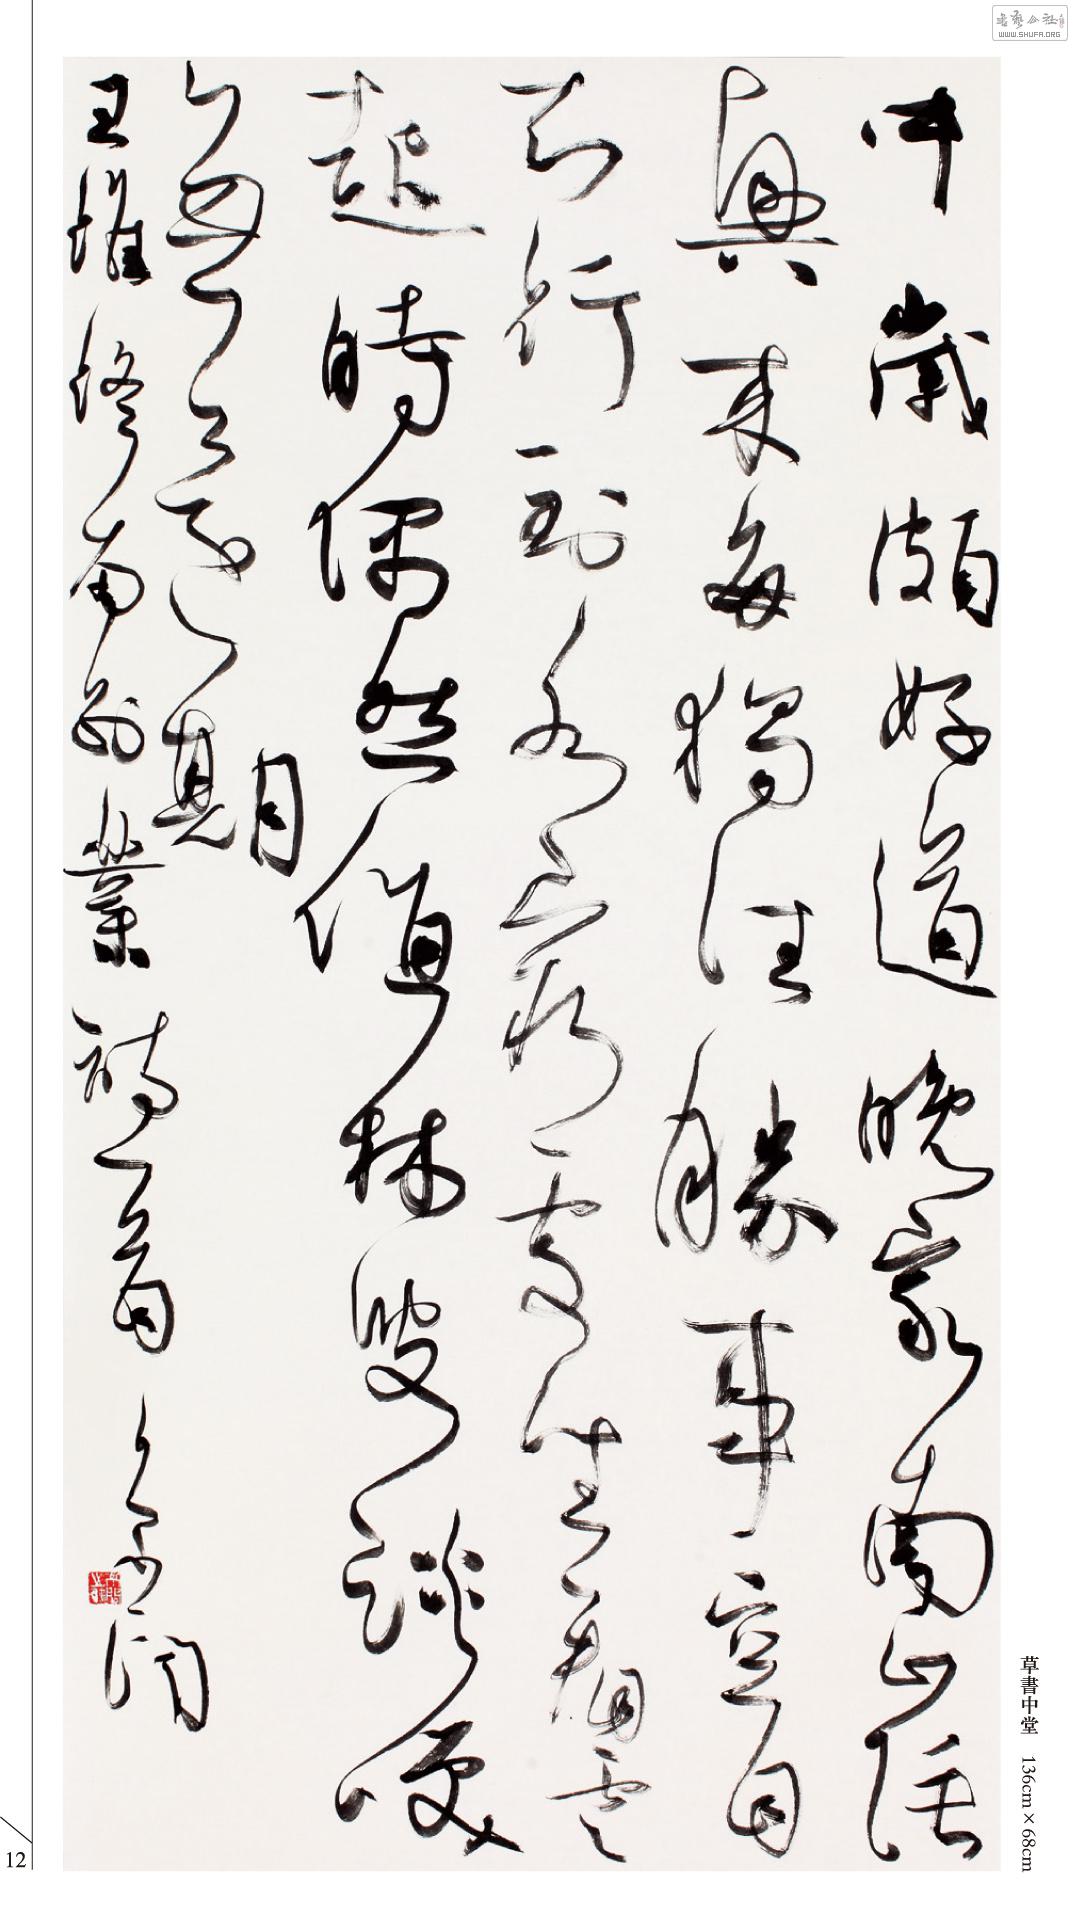 中歲頗好道晚家南山陲
興來每獨往勝事空自
知行到水窮處坐看雲
起時偶然值林叟談咲
無還期
王維終南別業詩一首
草書中堂 136cm×68cm
12
書藝公社
WWW.SHUFA.ORG